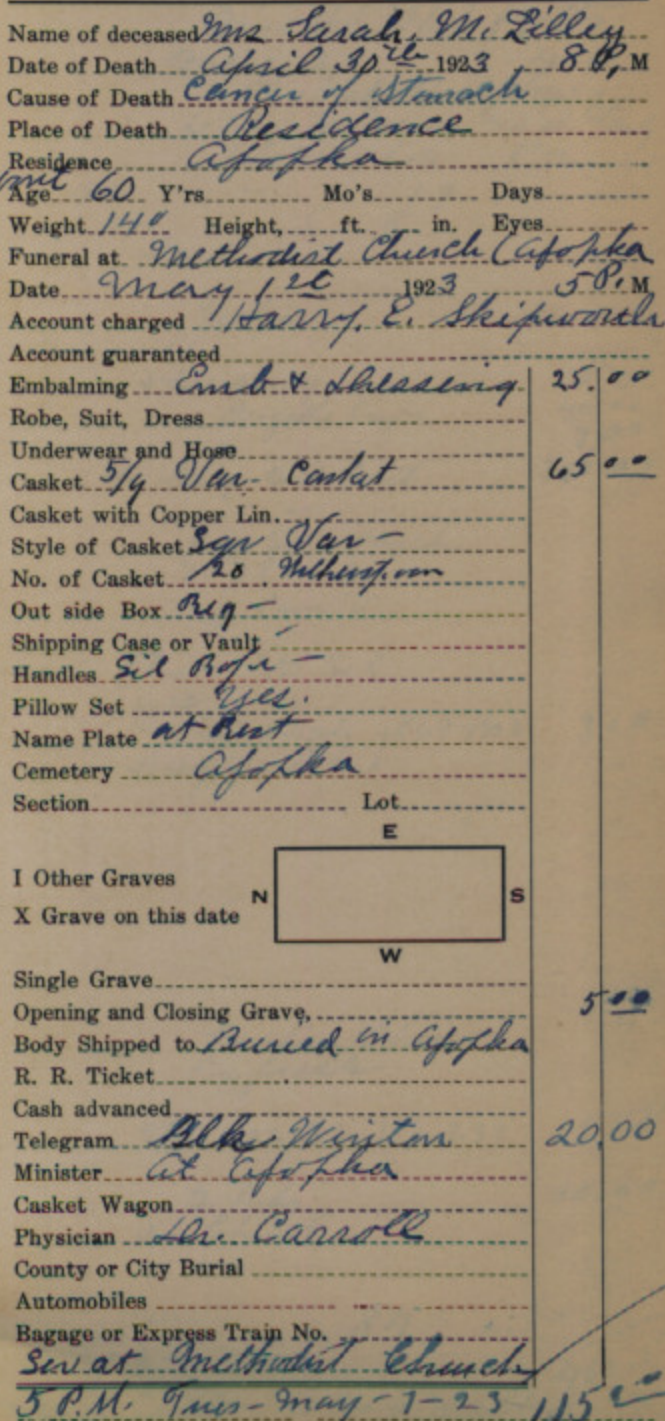 Name of deceased Mrs Sarah. M. Lilley
Date of Death April 30th 1923 8 P, M
Cause of Death Cancer of Stomach
Place of Death Residence
Residence Apopka
Age 60 Y'rs Mo's Days
Weight 140 Height, ft. in. Eyes
Funeral at Methodist Church (Apopka
Date May 1st 1923 5 P. M
Account charged Harry. E. Skipworth
Account guaranteed
Embalming Emb & Dressing 25.00
Robe, Suit, Dress
Underwear and Hose
Casket 5/9 Var- Casket 65 00
Casket with Copper Lin.
Style of Casket Sqr Var-
No. of Casket 20
Out side Box Reg-
Shipping Case or Vault -
Handles Sil -
Pillow Set yes.
Name Plate at Rest
Cemetery Apopka
Section Lot
E
I Other Graves
N S
X Grave on this date
W
Single Grave
Opening and Closing Grave, 5 00
Body Shipped to Buried in Apopka
R. R. Ticket
Cash advanced
Telegram Blk 20.00
Minister at Apopka
Casket Wagon
Physician Dr. Carroll
County or City Burial
Automobiles
Bagage or Express Train No.
Ser at Methodist Church
5 P.M. Tues- May-1-23 115 00